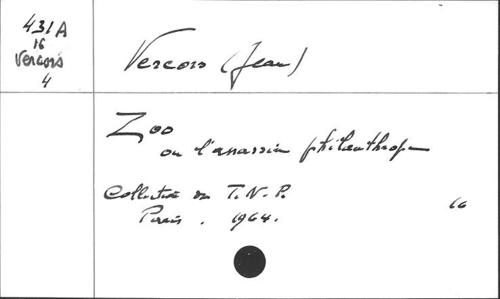 431A
16
Vercors
4
Vercors (Jean)
Zoo
ou l'assassin philanthrope
Collection du T.N.P.
Paris. 1964.
16